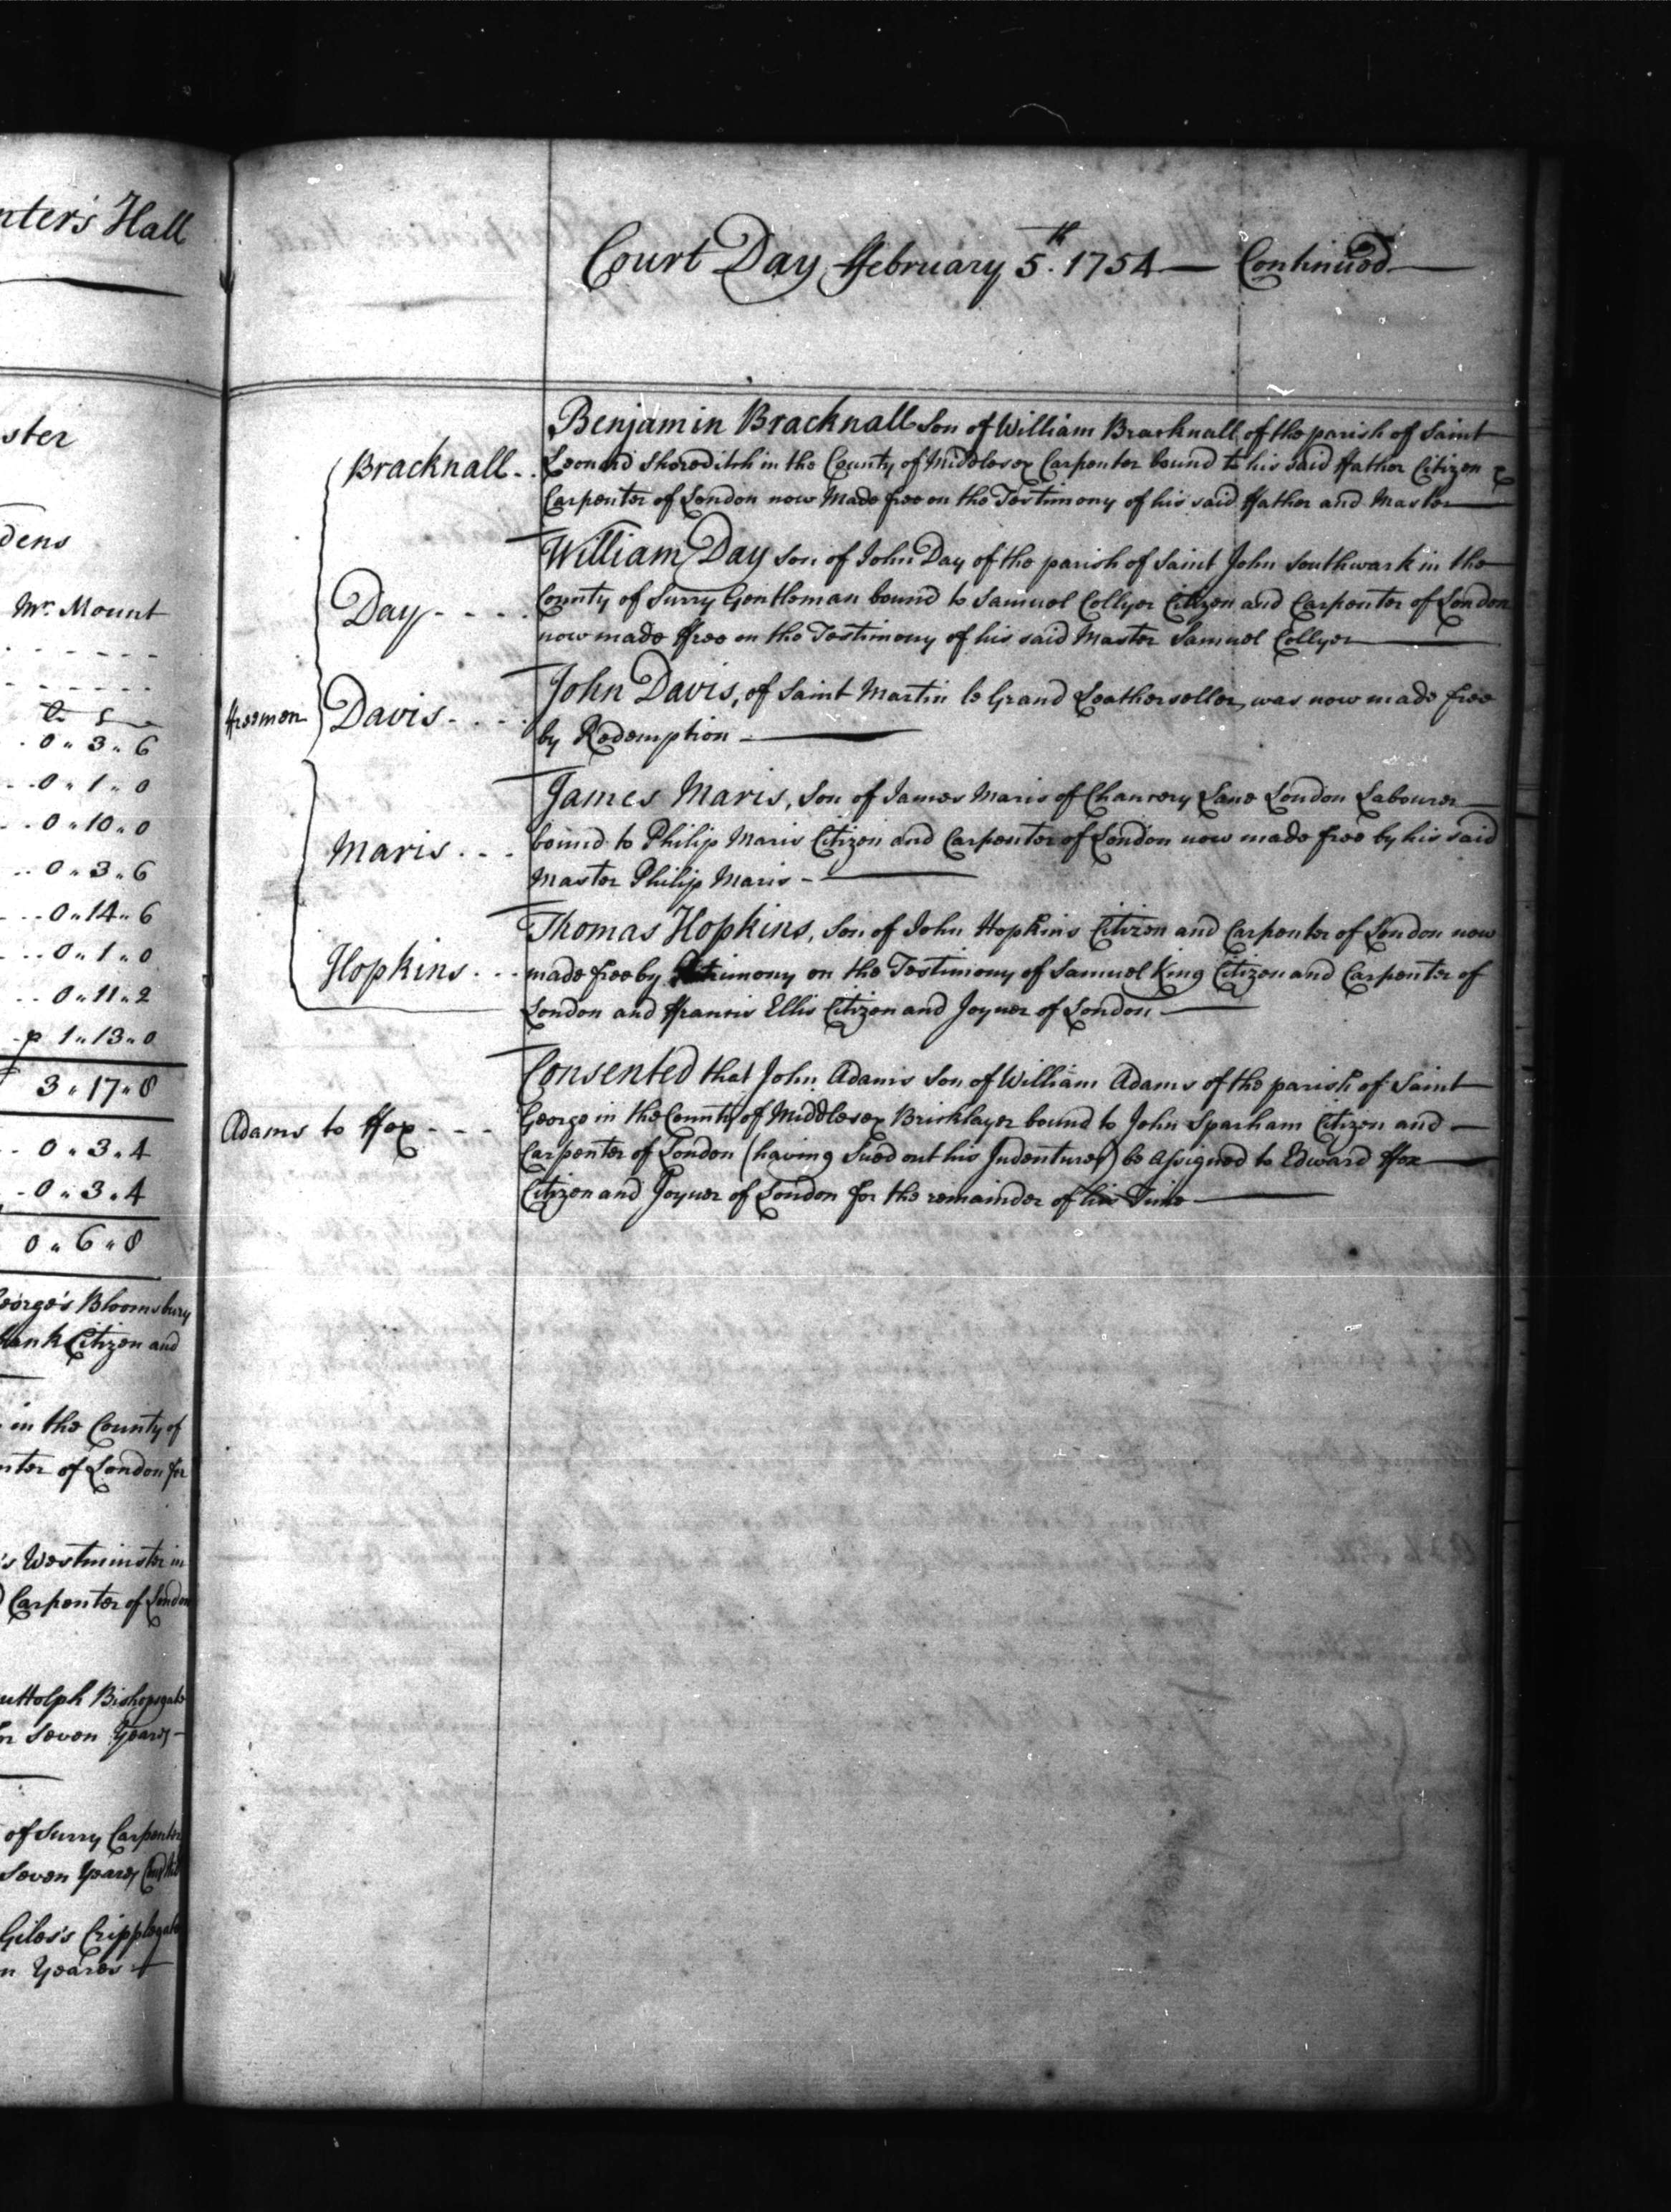 nter's Hall
ster
dens
Mr. Mount
0 " 3 " 6
0 " 1 " 0
0 " 10 " 0
0 " 3 " 6
0 " 14 " 6
0 " 1 " 0
0 " 11 " 2
p 1 " 13 " 0
3 " 17 " 8
0 " 3 " 4
0 " 3 " 4
0 " 6 " 8
George's Bloomsbury
Citizen and
in the County of
nter of London for
's Westminster in
Carpenter of London
Buttolph Bishopsgate
Seven Years
of Surry Carpenter
Seven Years
Giles's Cripplegate
n Years
Court Day ffebruary 5th. 1754 — Continued —
Benjamin Bracknall Son of William Bracknall of the parish of Saint
Bracknall . . Leonard Shoreditch in the County of Middlesex Carpenter bound to his said ffather Citizen &
Carpenter of London now Made free on the Testimony of his said ffather and Master
William Day son of John Day of the parish of Saint John Southwark in the
Day - - - . County of Surry Gentleman bound to Samuel Collyer Citizen and Carpenter of London
now made ffree on the Testimony of his said Master Samuel Collyer
John Davis, of Saint Martin le Grand Leatherseller, was now made free
ffreemen Davis - . . . by Redemption
James Maris, Son of James Maris of Chancery Lane London Labourer
Maris . . . bound to Philip Maris Citizen and Carpenter of London now made free by his said
Master Philip Maris
Thomas Hopkins, Son of John Hopkins Citizen and Carpenter of London now
Hopkins . . . made free by on the Testimony of Samuel King Citizen and Carpenter of
London and ffrancis Ellis Citizen and Joyner of London
Consented that John Adams Son of William Adams of the parish of Saint
Adams to ffox - - - George in the County of Middlesex Bricklayer bound to John Sparham Citizen and
Carpenter of London (having Sued out his Indentures) be Assigned to Edward ffox
Citizen and Joyner of London for the remainder of his Time